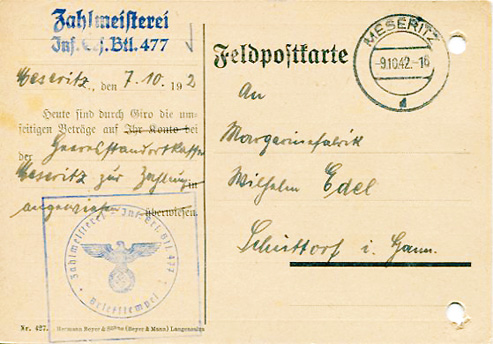 Zahlmeisterei
Inf. Ers. Btl. 477
Feldpostkarte
MESERITZ
-9.10.42.-16
d
Meseritz, den 7.10. 1942
Heute sind durch Giro die um-
seitigen Beträge auf Ihr Konto bei
der Heeresstandortkasse
Meseritz zur Zahlung in
angewiesen überwiesen.
An
Margarinefabrik
Wilhelm Edel
Schüttorf i. Hann.
Zahlmeisterei Inf. Ers. Btl. 477
Briefstempel
Nr. 427. Hermann Beyer & Söhne (Beyer & Mann) Langensalza